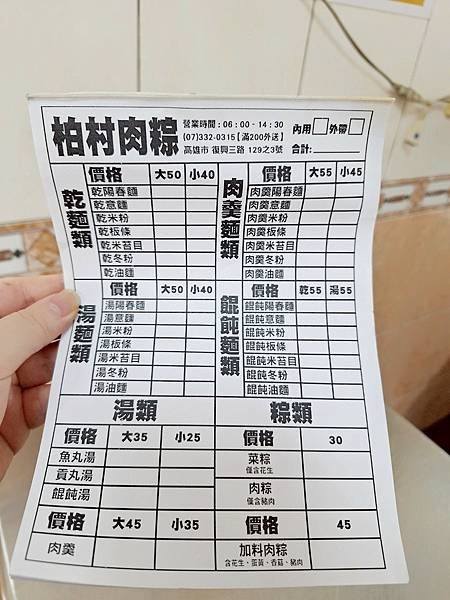 柏村肉粽
營業時間:06:00-14:30
(07)332-0315【滿200外送】
高雄市 復興三路 129之3號
內用 外帶
合計:
乾麵類
價格 大50 小40
乾陽春麵
乾意麵
乾米粉
乾板條
乾米苔目
乾冬粉
乾油麵
肉羹麵類
價格 大55 小45
肉羹陽春麵
肉羹意麵
肉羹米粉
肉羹板條
肉羹米苔目
肉羹冬粉
肉羹油麵
湯麵類
價格 大50 小40
湯陽春麵
湯意麵
湯米粉
湯板條
湯米苔目
湯冬粉
湯油麵
餛飩麵類
價格 乾55 湯55
餛飩陽春麵
餛飩意麵
餛飩米粉
餛飩板條
餛飩米苔目
餛飩冬粉
餛飩油麵
湯類
價格 大35 小25
魚丸湯
貢丸湯
餛飩湯
價格 大45 小35
肉羹
粽類
價格 30
菜粽
僅含花生
肉粽
僅含豬肉
價格 45
加料肉粽
含花生、蛋黃、香菇、豬肉